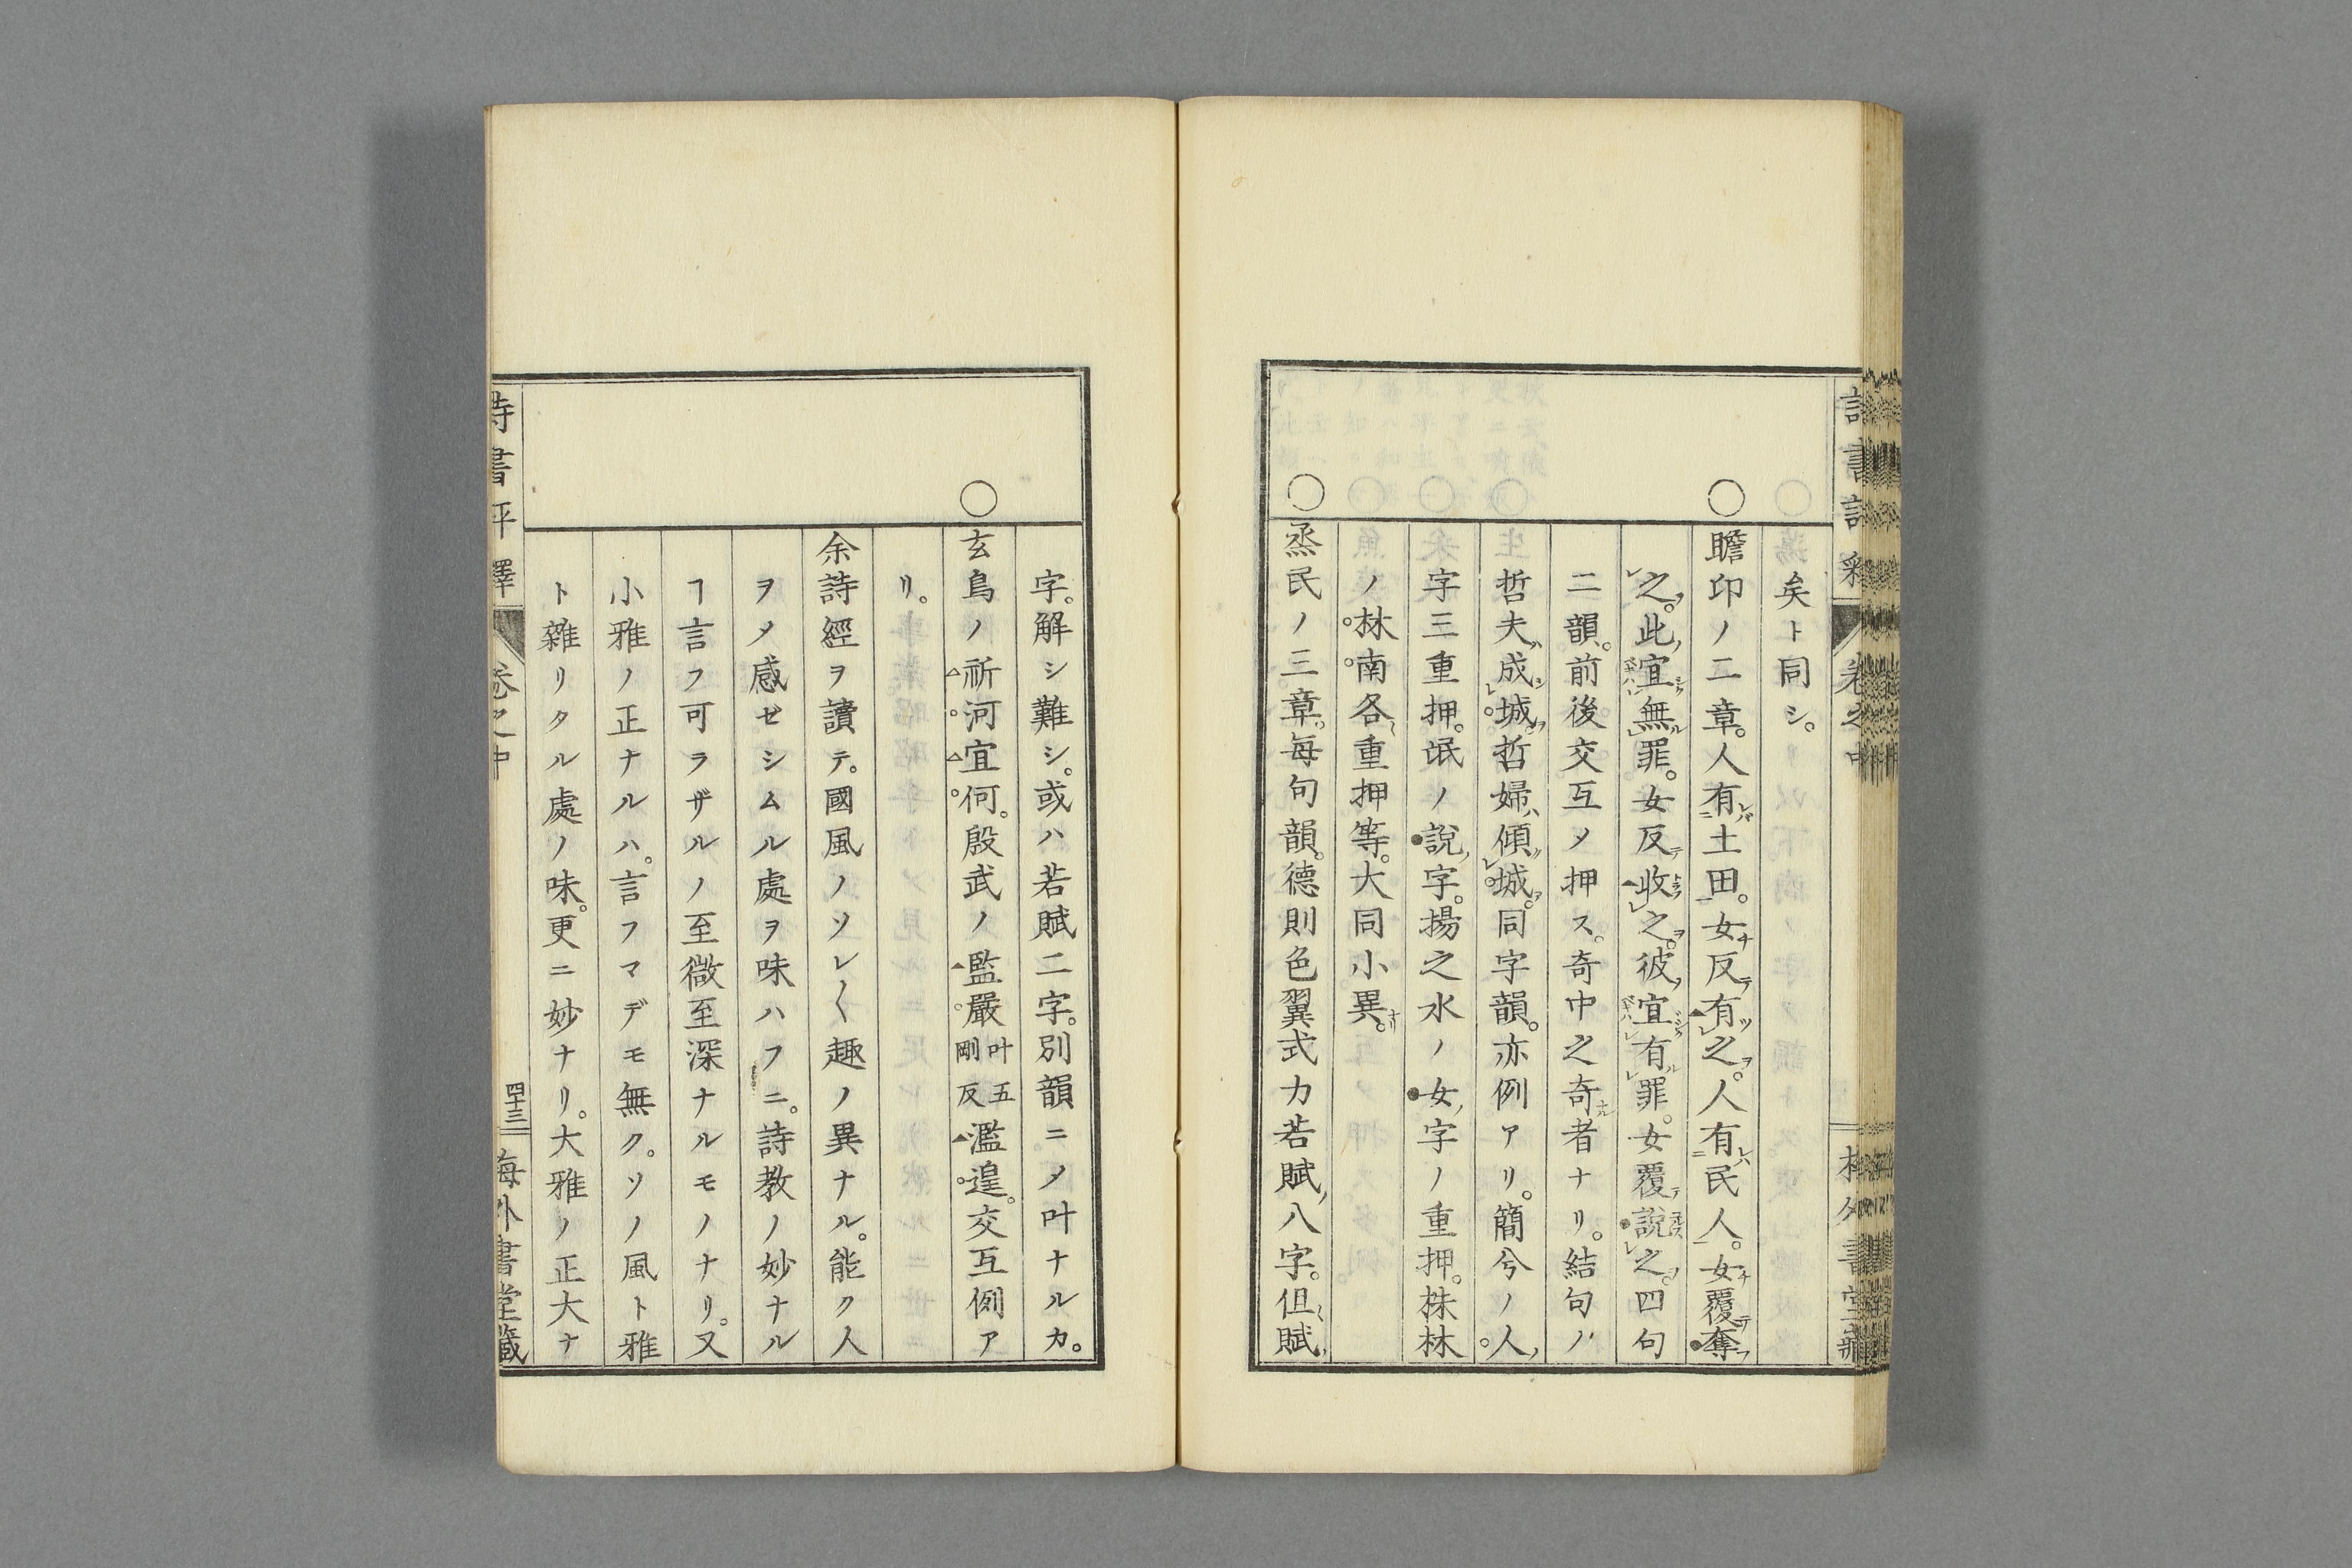 矣ト同シ。
○瞻卬ノ二章。人有土田。女反有之。人有民人。女覆奪
之。此宜無罪。女反收之。彼宜有罪。女覆說之。四句
二韻。前後交互乄押ス。奇中之奇者ナリ。結句ノ
哲夫成城。哲婦傾城。同字韻。亦例アリ。簡兮ノ人
字三重押。氓ノ說字。揚之水ノ女字ノ重押。株林
ノ林南各重押等。大同小異。
○烝民ノ三章。每句韻。德則色翼式力若賦八字。但賦
字。解シ難シ。或ハ若賦二字。別韻ニ乄叶ナルカ。
○玄鳥ノ祈河宜何。殷武ノ監嚴叶五剛反濫遑。交互例ア
リ。
余詩經ヲ讀テ。國風ノソレ〱趣ノ異ナル。能ク人
ヲ乄感ゼシムル處ヲ味ハフニ。詩教ノ妙ナル
ヿ言フ可ラザルノ至微至深ナルモノナリ。又
小雅ノ正ナルハ。言フマデモ無ク。ソノ風ト雅
ト雜リタル處ノ味。更ニ妙ナリ。大雅ノ正大ナ
詩書評釋 卷之中 四十三 海外書堂藏